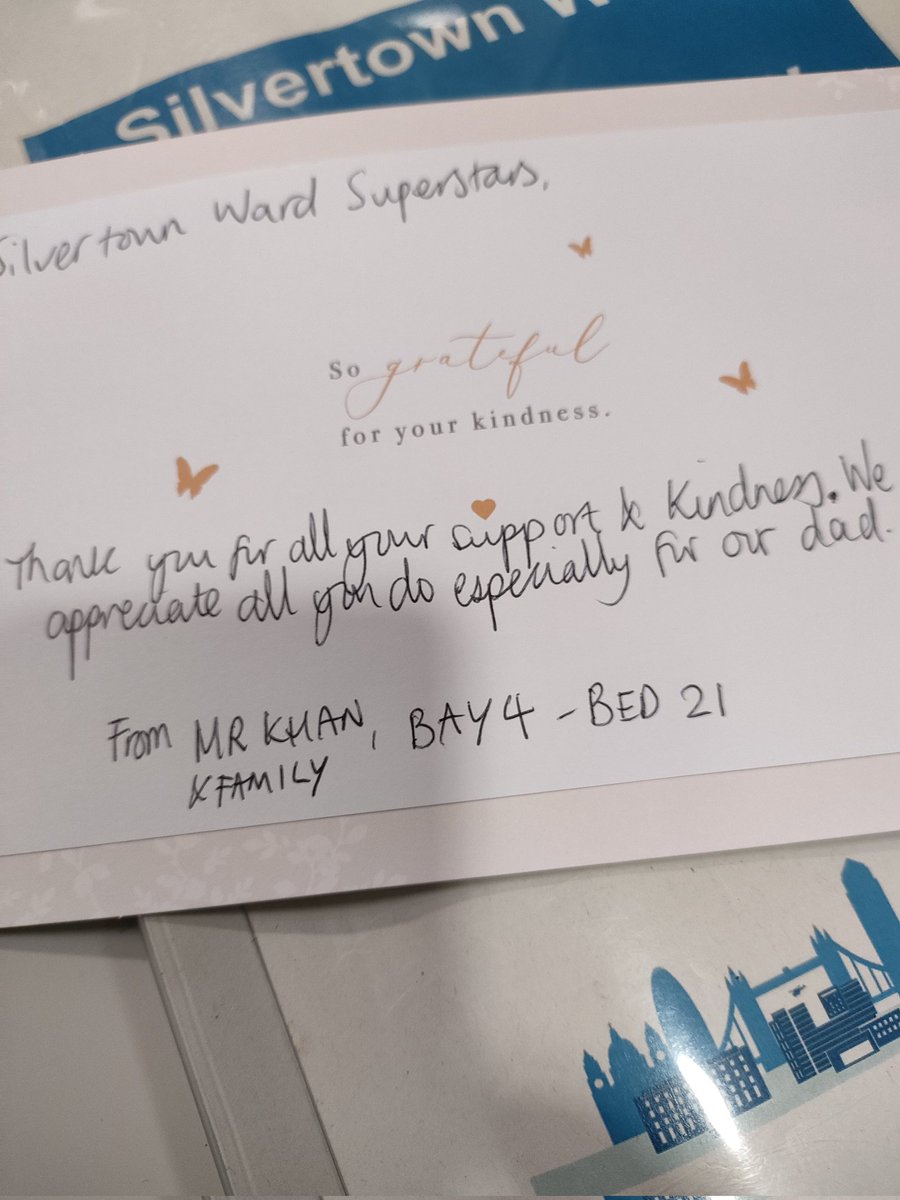 Silvertown W
Silvertown Ward Superstars,
So grateful
for your kindness.
Thank you for all your support & kindness. We
appreciate all you do especially for our dad.
From MR KHAN, BAY 4 - BED 21
& FAMILY